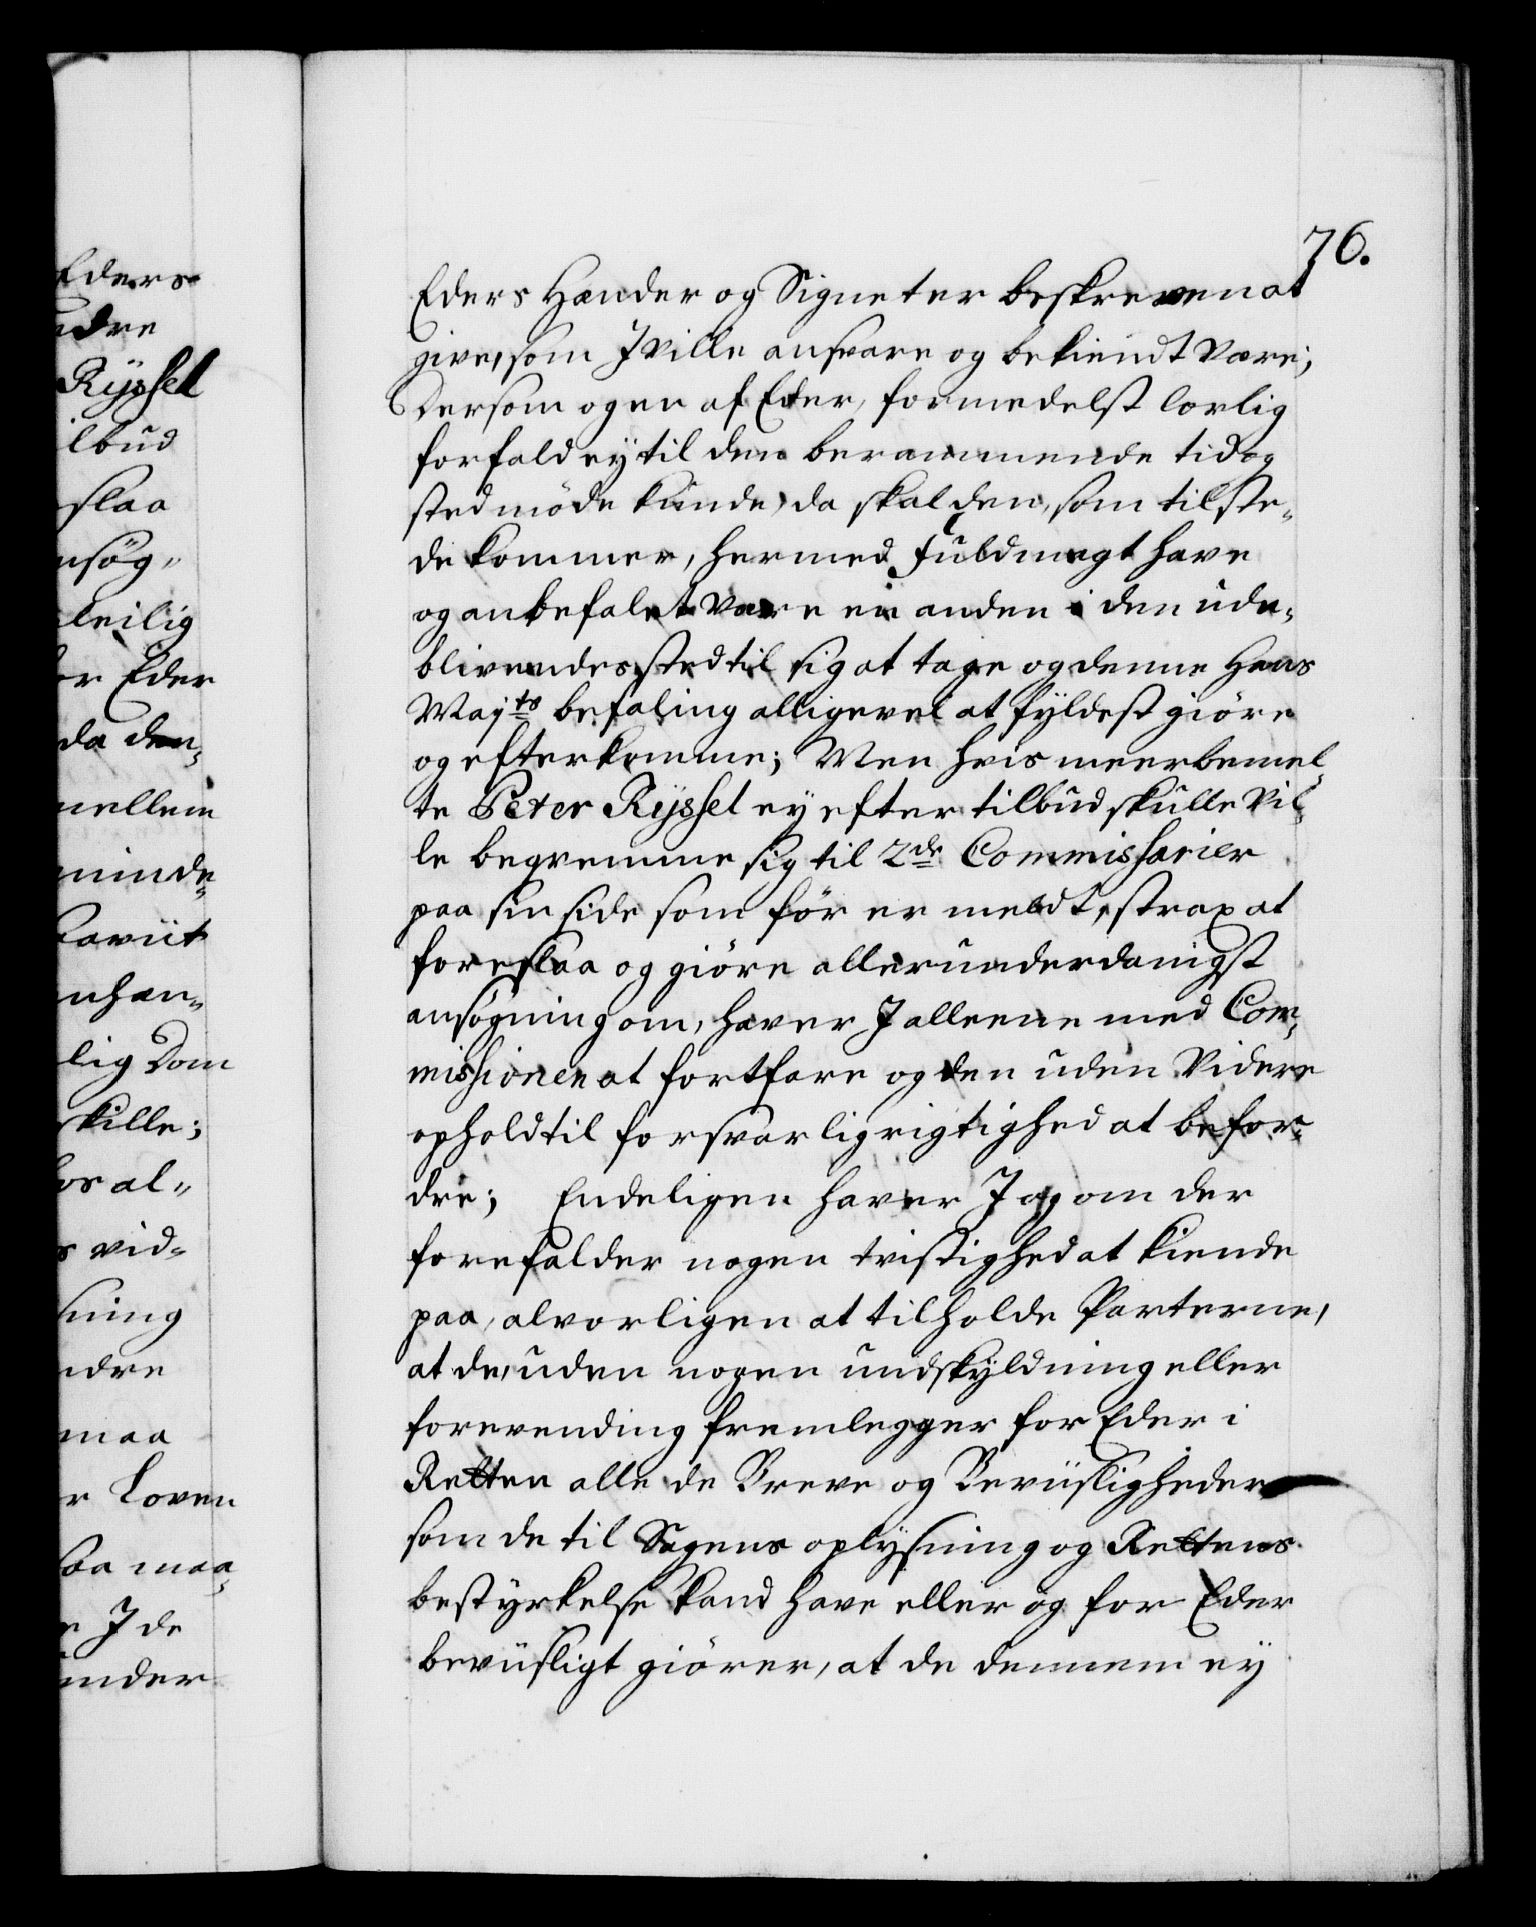 76.
Eders Hænder og Signeter beskreven at
give, som I ville ansvare og bekiendt være;
Dersom ogen af Eder, formedelst lovlig
forfald ey til den berammende tid og
sted møde kunde, da skal den, som tilste„
de kommer, hermed fuldmagt have
og anbefalet være en anden i den ude„
blivendes sted til sig at tage og denne Hans
Majts befaling alligevel at fyldest giøre
og efterkomme; Men hvis meerbemel„
te Peter Rÿssel ey efter tilbud skulle vil„
le beqvemme sig til 2de Commissarier
paa sin side som før er meldt, strax at
foreslaa og giøre allerunderdanigst
ansøgning om, haver I alleene med Com„
missionen at fortfare og den uden videre
ophold til forsvarlig rigtighed at befor„
dre; Endeligen haver I og om der
forefalder nogen tvistighed at kiende
paa, alvorligen at tilholde Parterne,
at de, uden nogen undskyldning eller
forevending fremlegger for Eder i
Retten alle de Breve og Beviisligheder
som de til Sagens oplysning og Rettens
bestyrkelse kand have eller og for Eder
beviisligt giører, at de dennem ey
Eders
dre
Rÿssel
ilbud
slaa
nsøg„
leilig
or Eder
da den„
mellem
minde„
avüt
nhan„
lig Dom
skille;
os al„
s vid„
ning
ndre
maa
r Loven
saa maa„
e I de
under